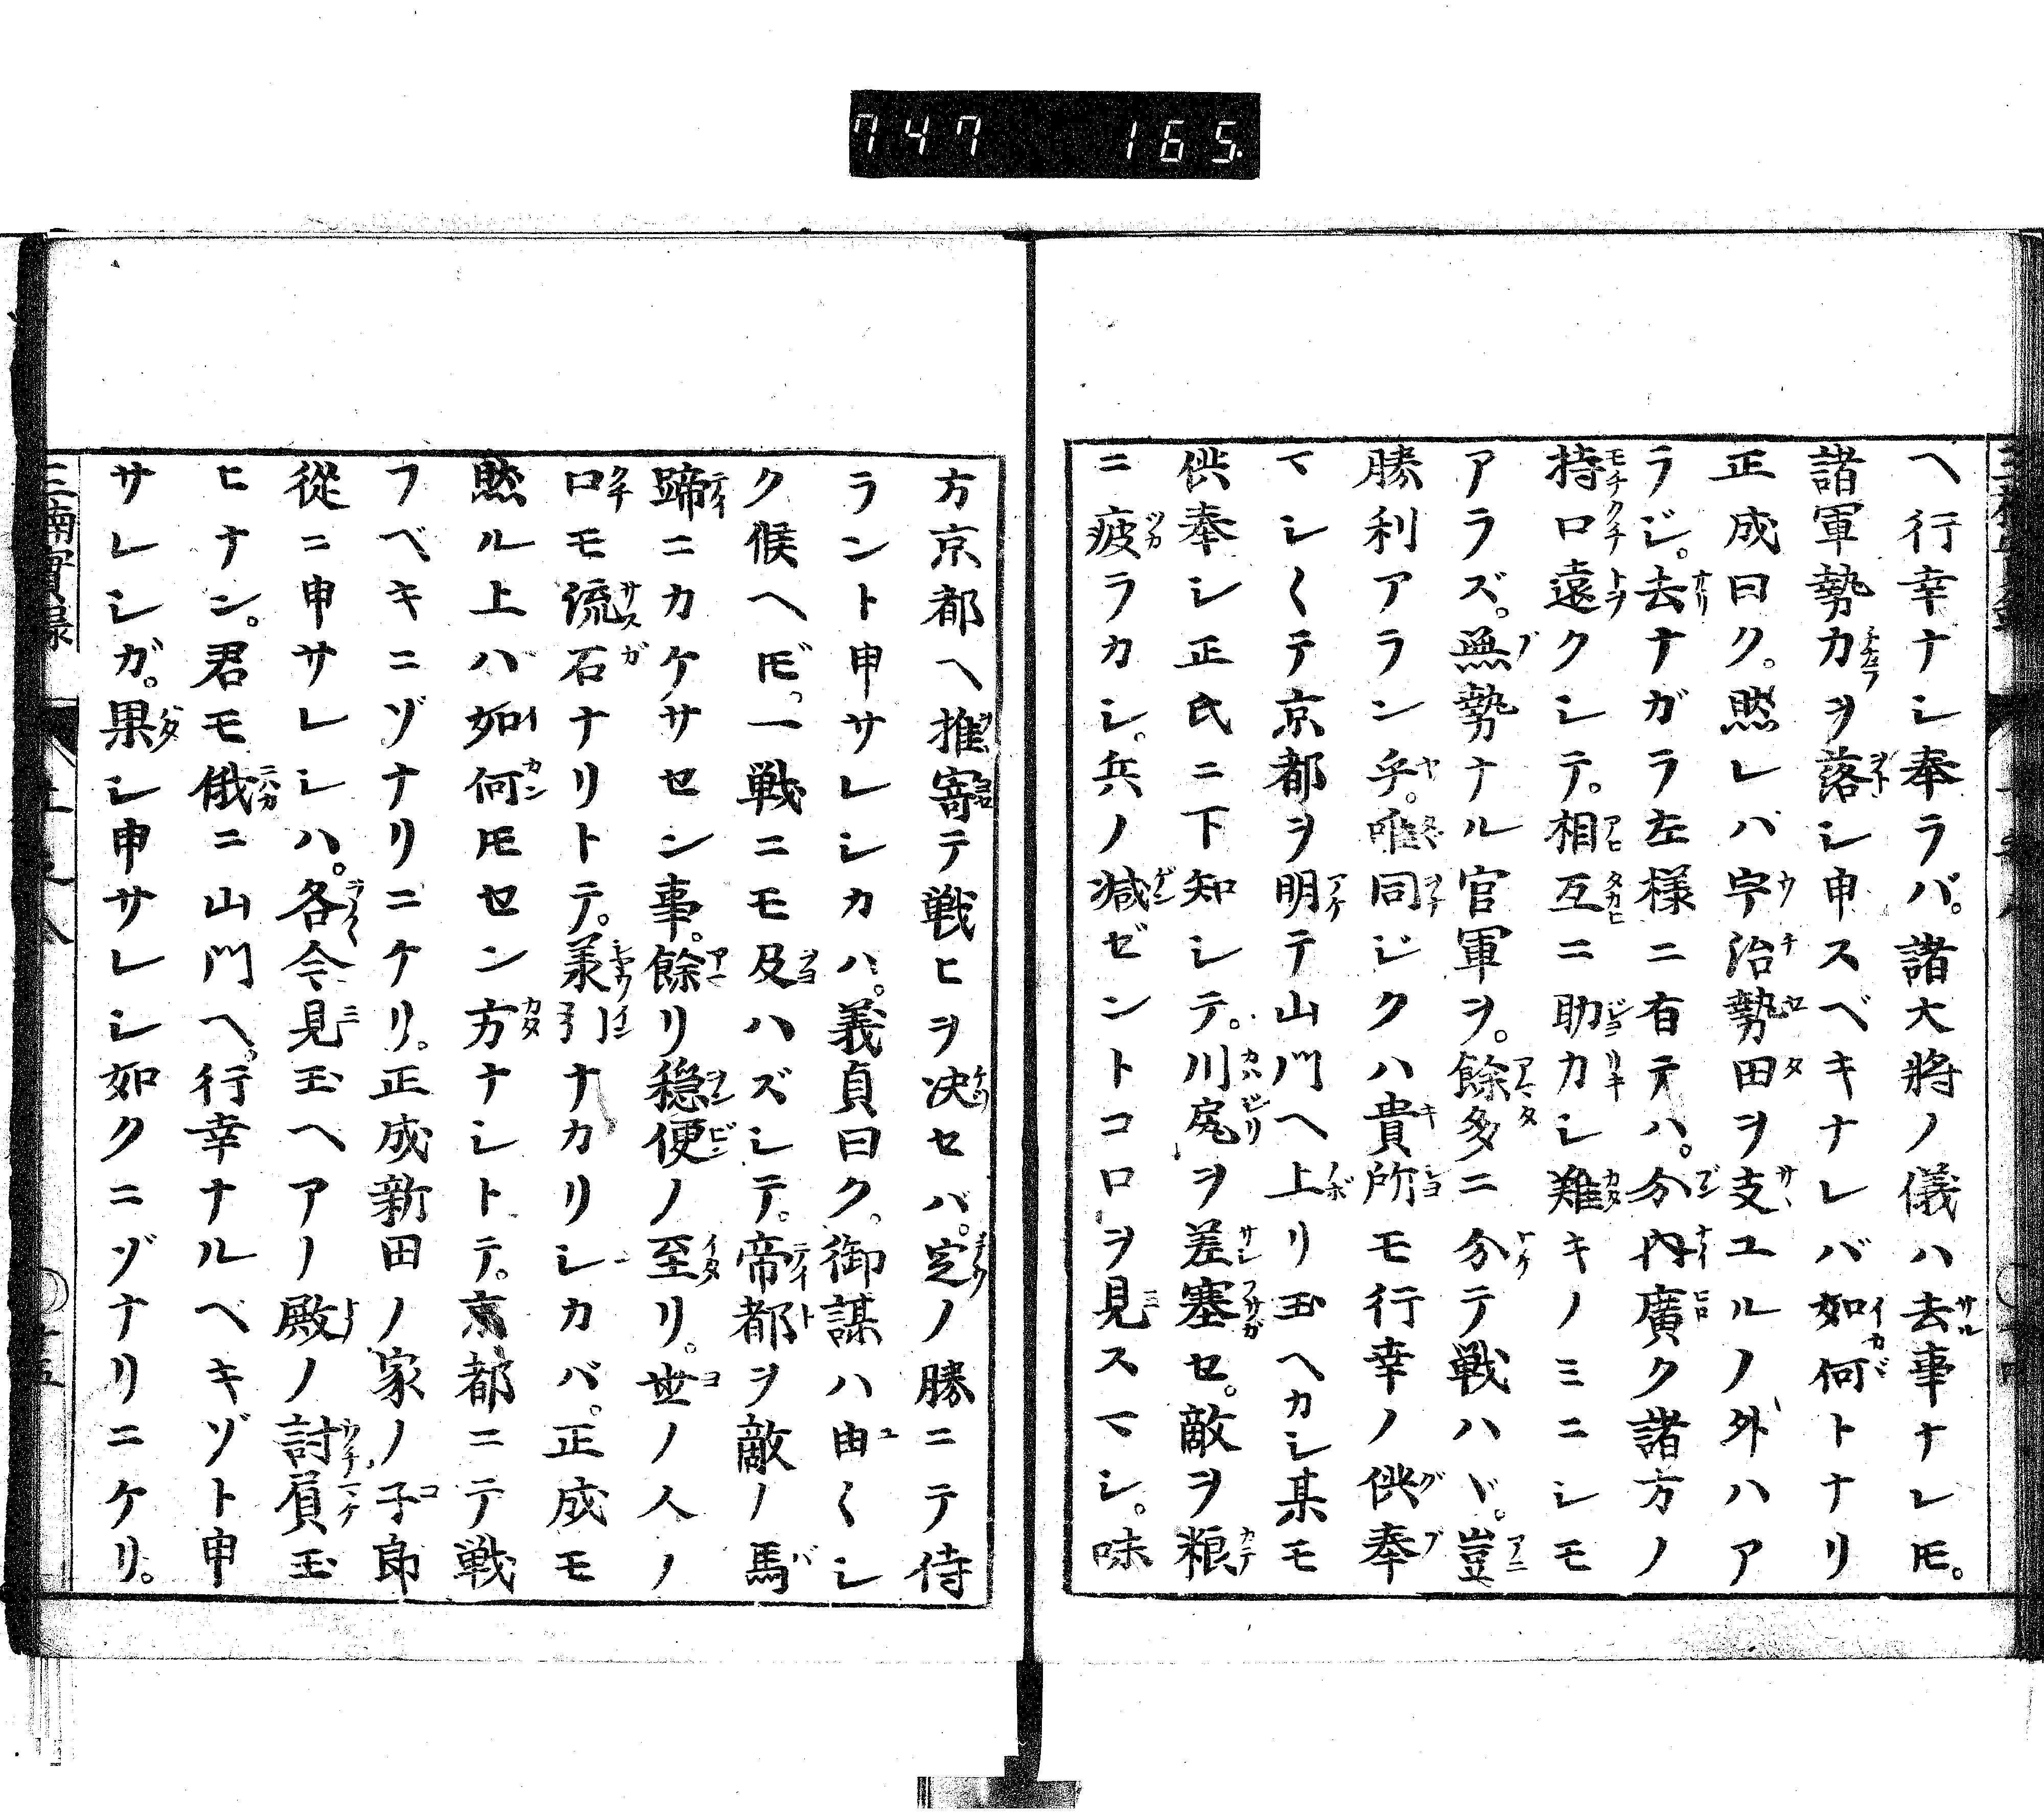 747 165.
ヘ行幸ナシ奉ラバ。諸大將ノ儀ハ去事ナレ𪜈。
諸軍勢力ヲ落シ申スベキナレバ如何トナリ
正成曰ク。然レバ宇治勢田ヲ支ユルノ外ハア
ラジ。去ナガラ左樣ニ有テハ。分內廣ク諸方ノ
持口遠クシテ。相互ニ助力シ難キノミニシモ
アラズ。無勢ナル官軍ヲ。餘多ニ分テ戰ハヾ。豈
勝利アラン乎。唯同ジクハ貴所モ行幸ノ供奉
マシ〱テ京都ヲ明テ山門ヘ上リ玉ヘカシ某モ
供奉シ正氏ニ下知シテ。川尻ヲ差塞セ。敵ヲ粮
ニ疲ラカシ。兵ノ減ゼントコロヲ見スマシ。味
方京都ヘ推寄テ戰ヒヲ決セバ。定ノ勝ニテ侍
ラント申サレシカハ。義貞曰ク。御謀ハ由〱シ
ク候ヘ𪜈。一戰ニモ及ハズシテ。帝都ヲ敵ノ馬
蹄ニカケサセン事。餘リ穩便ノ至リ。世ノ人ノ
口モ流石ナリトテ。羕引ナカリシカバ。正成モ
然ル上ハ如何𪜈セン方ナシトテ。京都ニテ戰
フベキニゾナリニケリ。正成新田ノ家ノ子郎
從ニ申サレシハ。各今見玉ヘアノ殿ノ討負玉
ヒナン。君モ俄ニ山門ヘ。行幸ナルベキゾト申
サレシガ。果シ申サレシ如クニゾナリニケリ。
三楠實録